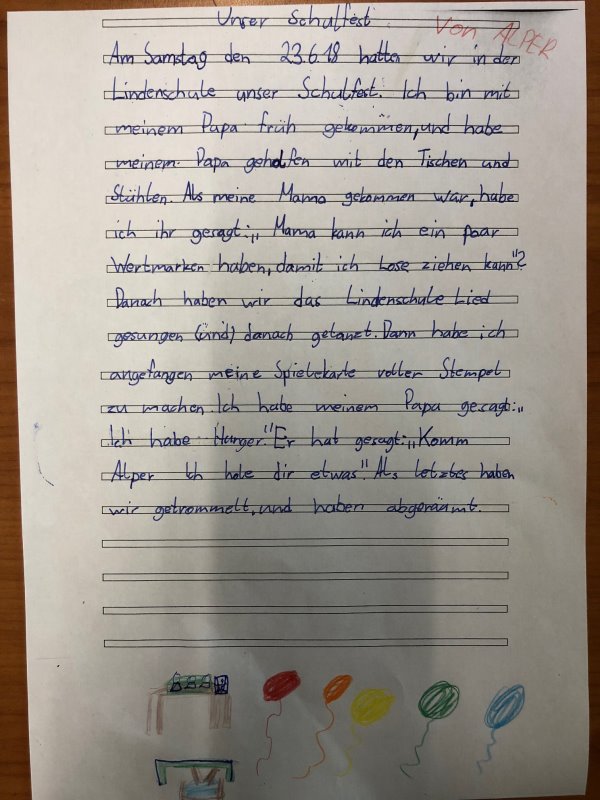 Unser Schulfest
Von ALPER
Am Samstag den 23.6.18 hatten wir in der
Lindenschule unser Schulfest. Ich bin mit
meinem Papa früh gekommen, und habe
meinem Papa geholfen mit den Tischen und
Stühlen. Als meine Mama gekommen war, habe
ich ihr gesagt: „ Mama kann ich ein paar
Wertmarken haben, damit ich Lose ziehen kann"?
Danach haben wir das Lindenschule Lied
gesungen (und) danach getanzt. Dann habe ich
angefangen meine Spielekarte voller Stempel
zu machen. Ich habe meinem Papa gesagt: „
Ich habe Hunger." Er hat gesagt: „Komm
Alper Ich hole dir etwas". Als letztes haben
wir getrommelt, und haben abgeräumt.